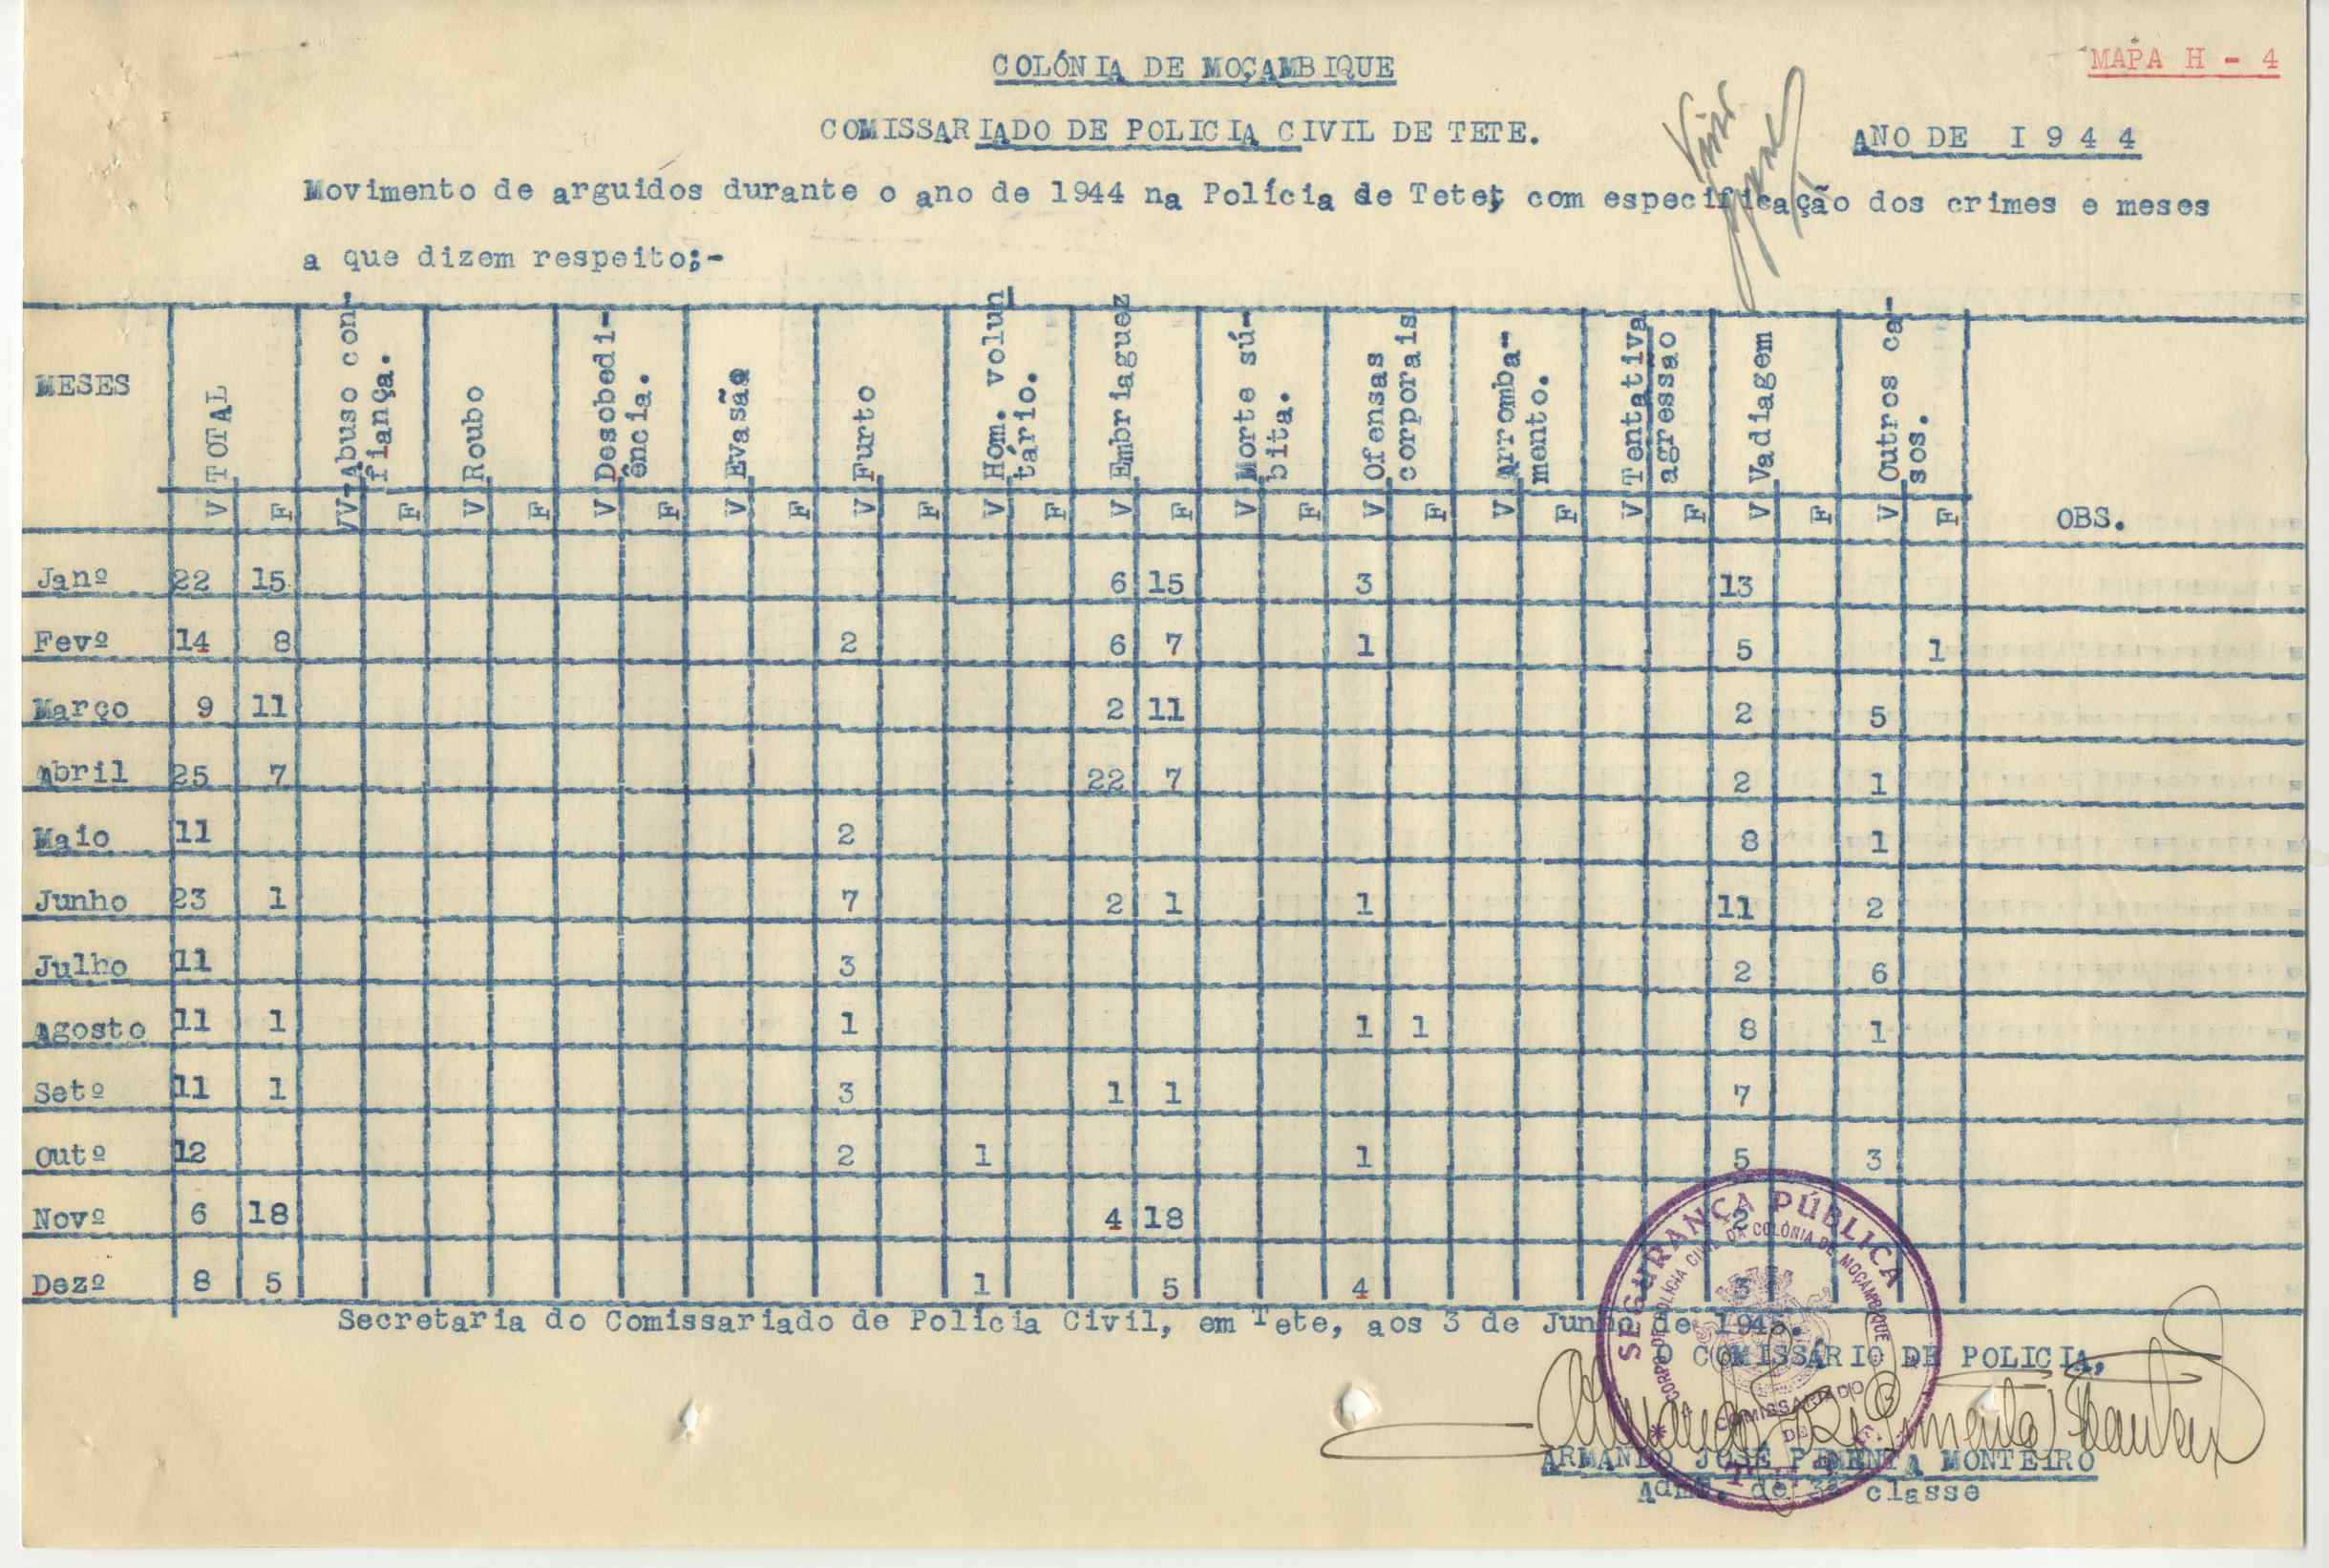 MAPA H - 4
COLÓNIA DE MOÇAMBIQUE
COMISSARIADO DE POLICIA CIVIL DE TETE.
ANO DE I 9 4 4
Movimento de arguidos durante o ano de 1944 na Polícia de Tete, com especificação dos crimes e meses
a que dizem respeito;-
MESES TOTAL Abuso con-fiança. Roubo Desobedi-ência. Evasão Furto Hom. volun tário. Embriaguez Morte sú-bita. Ofensas corporais Arromba-mento. Tentativa agressao Vadiagem Outros ca-sos. OBS.
V F VV F V F V F V F V F V F V F V F V F V F V F V F V F
Janº 22 15 6 15 3 13
Fevº 14 8 2 6 7 1 5 1
Março 9 11 2 11 2 5
Abril 25 7 22 7 2 1
Maio 11 2 8 1
Junho 23 1 7 2 1 1 11 2
Julho 11 3 2 6
Agosto 11 1 1 1 1 8 1
Setº 11 1 3 1 1 7
Outº 12 2 1 1 5 3
Novº 6 18 4 18 2
Dezº 8 5 1 5 4 3
Secretaria do Comissariado de Polícia Civil, em Tete, aos 3 de Junho de
O COMISSÁRIO DE POLICIA,
ARMANDO JOSÉ PIMENTA MONTEIRO
Admº. de 3ª classe
SEGURANÇA PÚBLICA
CORPO DE POLÍCIA CIVIL DA COLÓNIA DE MOÇAMBIQUE
COMISSARIADO
DE